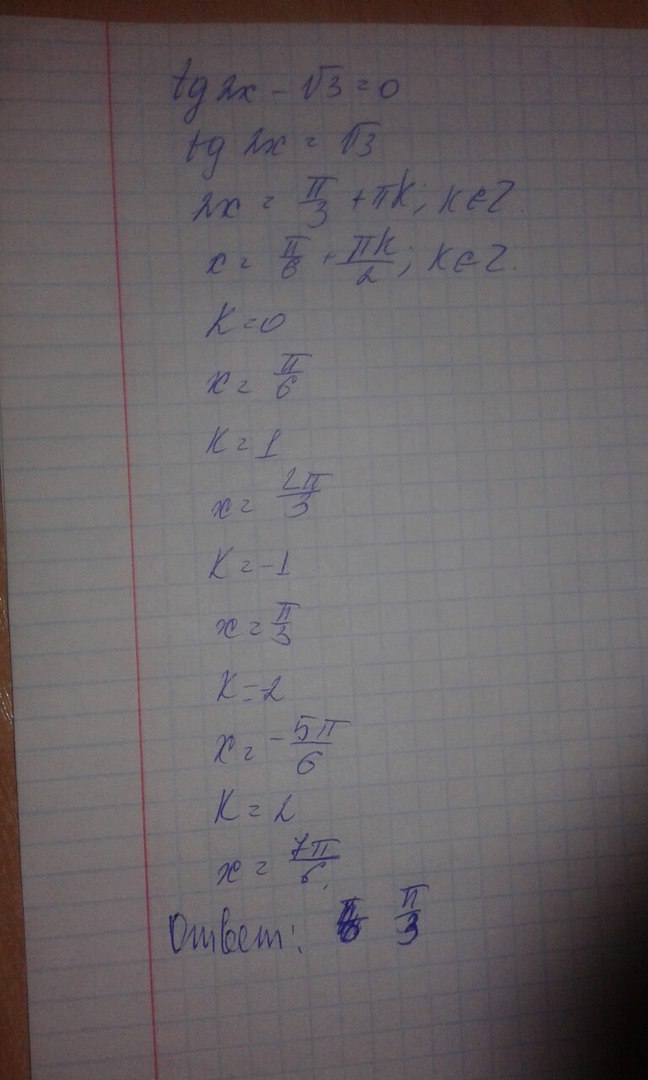 tg 2x - √3 = 0
tg 2x = √3
2x = π/3 + πk; k ∈ Z.
x = π/6 + πk/2; k ∈ Z.
K = 0
x = π/6
K = 1
x = 2π/3
K = -1
x = π/3
K = 2
x = -5π/6
K = 2
x = 7π/6.
Ответ: π/3